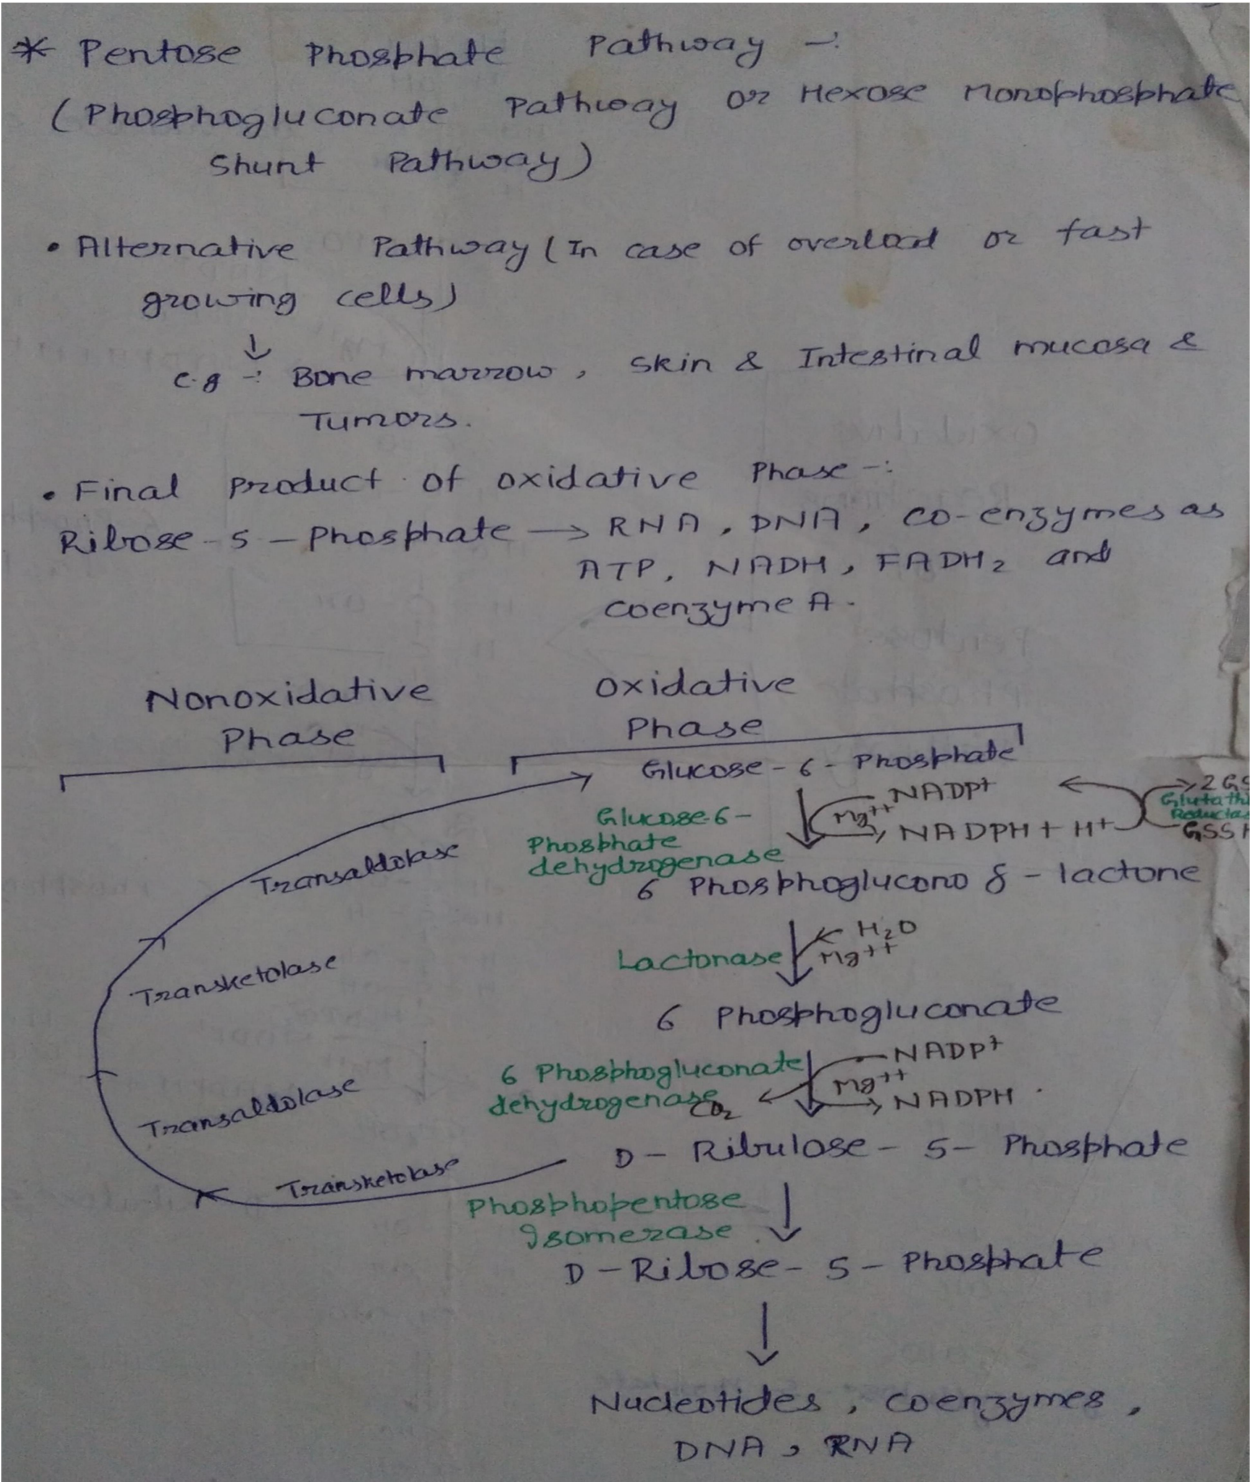 * Pentose Phosphate Pathway -:
(Phosphogluconate Pathway or Hexose Monophosphate
Shunt Pathway)
• Alternative Pathway (In case of overload or fast
growing cells)
↓
e.g -: Bone marrow, skin & Intestinal mucosa &
Tumors.
• Final product of oxidative Phase -:
Ribose-5-Phosphate → RNA, DNA, co-enzymes as
ATP, NADH, FADH₂ and
coenzyme A.
Nonoxidative
Phase
Oxidative
Phase
Glucose-6-Phosphate
Glucose-6-
Phosphate
dehydrogenase
NADP+
Mg++
NADPH + H+
2 GS
Glutathi
Reductas
GSS
6 Phosphoglucono δ-lactone
Lactonase
H₂O
Mg++
6 Phosphogluconate
6 Phosphogluconate
dehydrogenase
CO₂
NADP+
Mg++
NADPH
D-Ribulose-5-Phosphate
Transaldolase
Transketolase
Transaldolase
Transketolase
Phosphopentose
Isomerase
D-Ribose-5-Phosphate
↓
Nucleotides, coenzymes,
DNA, RNA